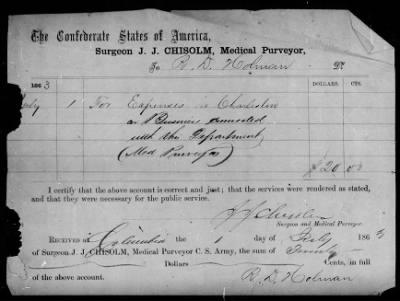 The Confederate States of America,
Surgeon J. J. CHISOLM, Medical Purveyor,
To R. D. Holman Dr.
DOLLARS. CTS.
1863
July 1 For Expenses in Charleston
on Business connected
with the Department
(Med Purveyor)
$20.00
I certify that the above account is correct and just; that the services were rendered as stated,
and that they were necessary for the public service.
J J Chisolm
Surgeon and Medical Purveyor.
RECEIVED at Columbia the 1 day of July 1863
of Surgeon J. J. CHISOLM, Medical Purveyor C. S. Army, the sum of Twenty
Dollars Cents, in full
of the above account.
R. D. Holman